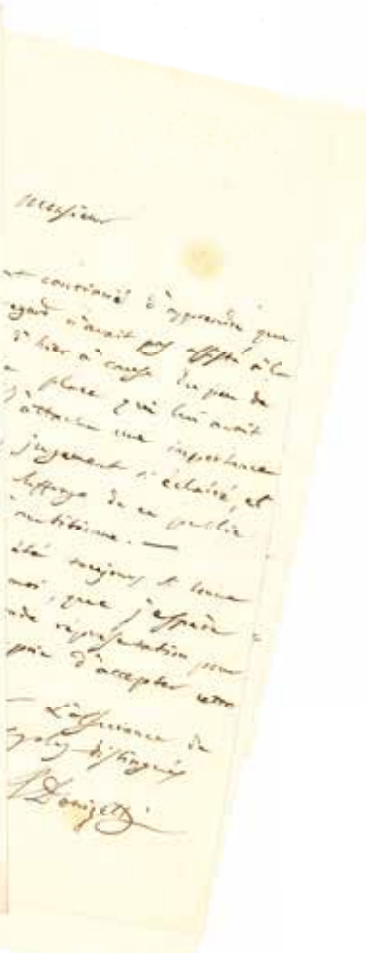 Monsieur
contrarié d'apprendre que
n'avait pas assisté à la
d'hier à cause du peu de
place qui lui avait
j'attache une importance
jugement si éclairé, et
suffrage de ce public
été toujours si bonne
moi, que j'espère
représentation pour
prie d'accepter
L'assurance de
plus distingués
Donizetti